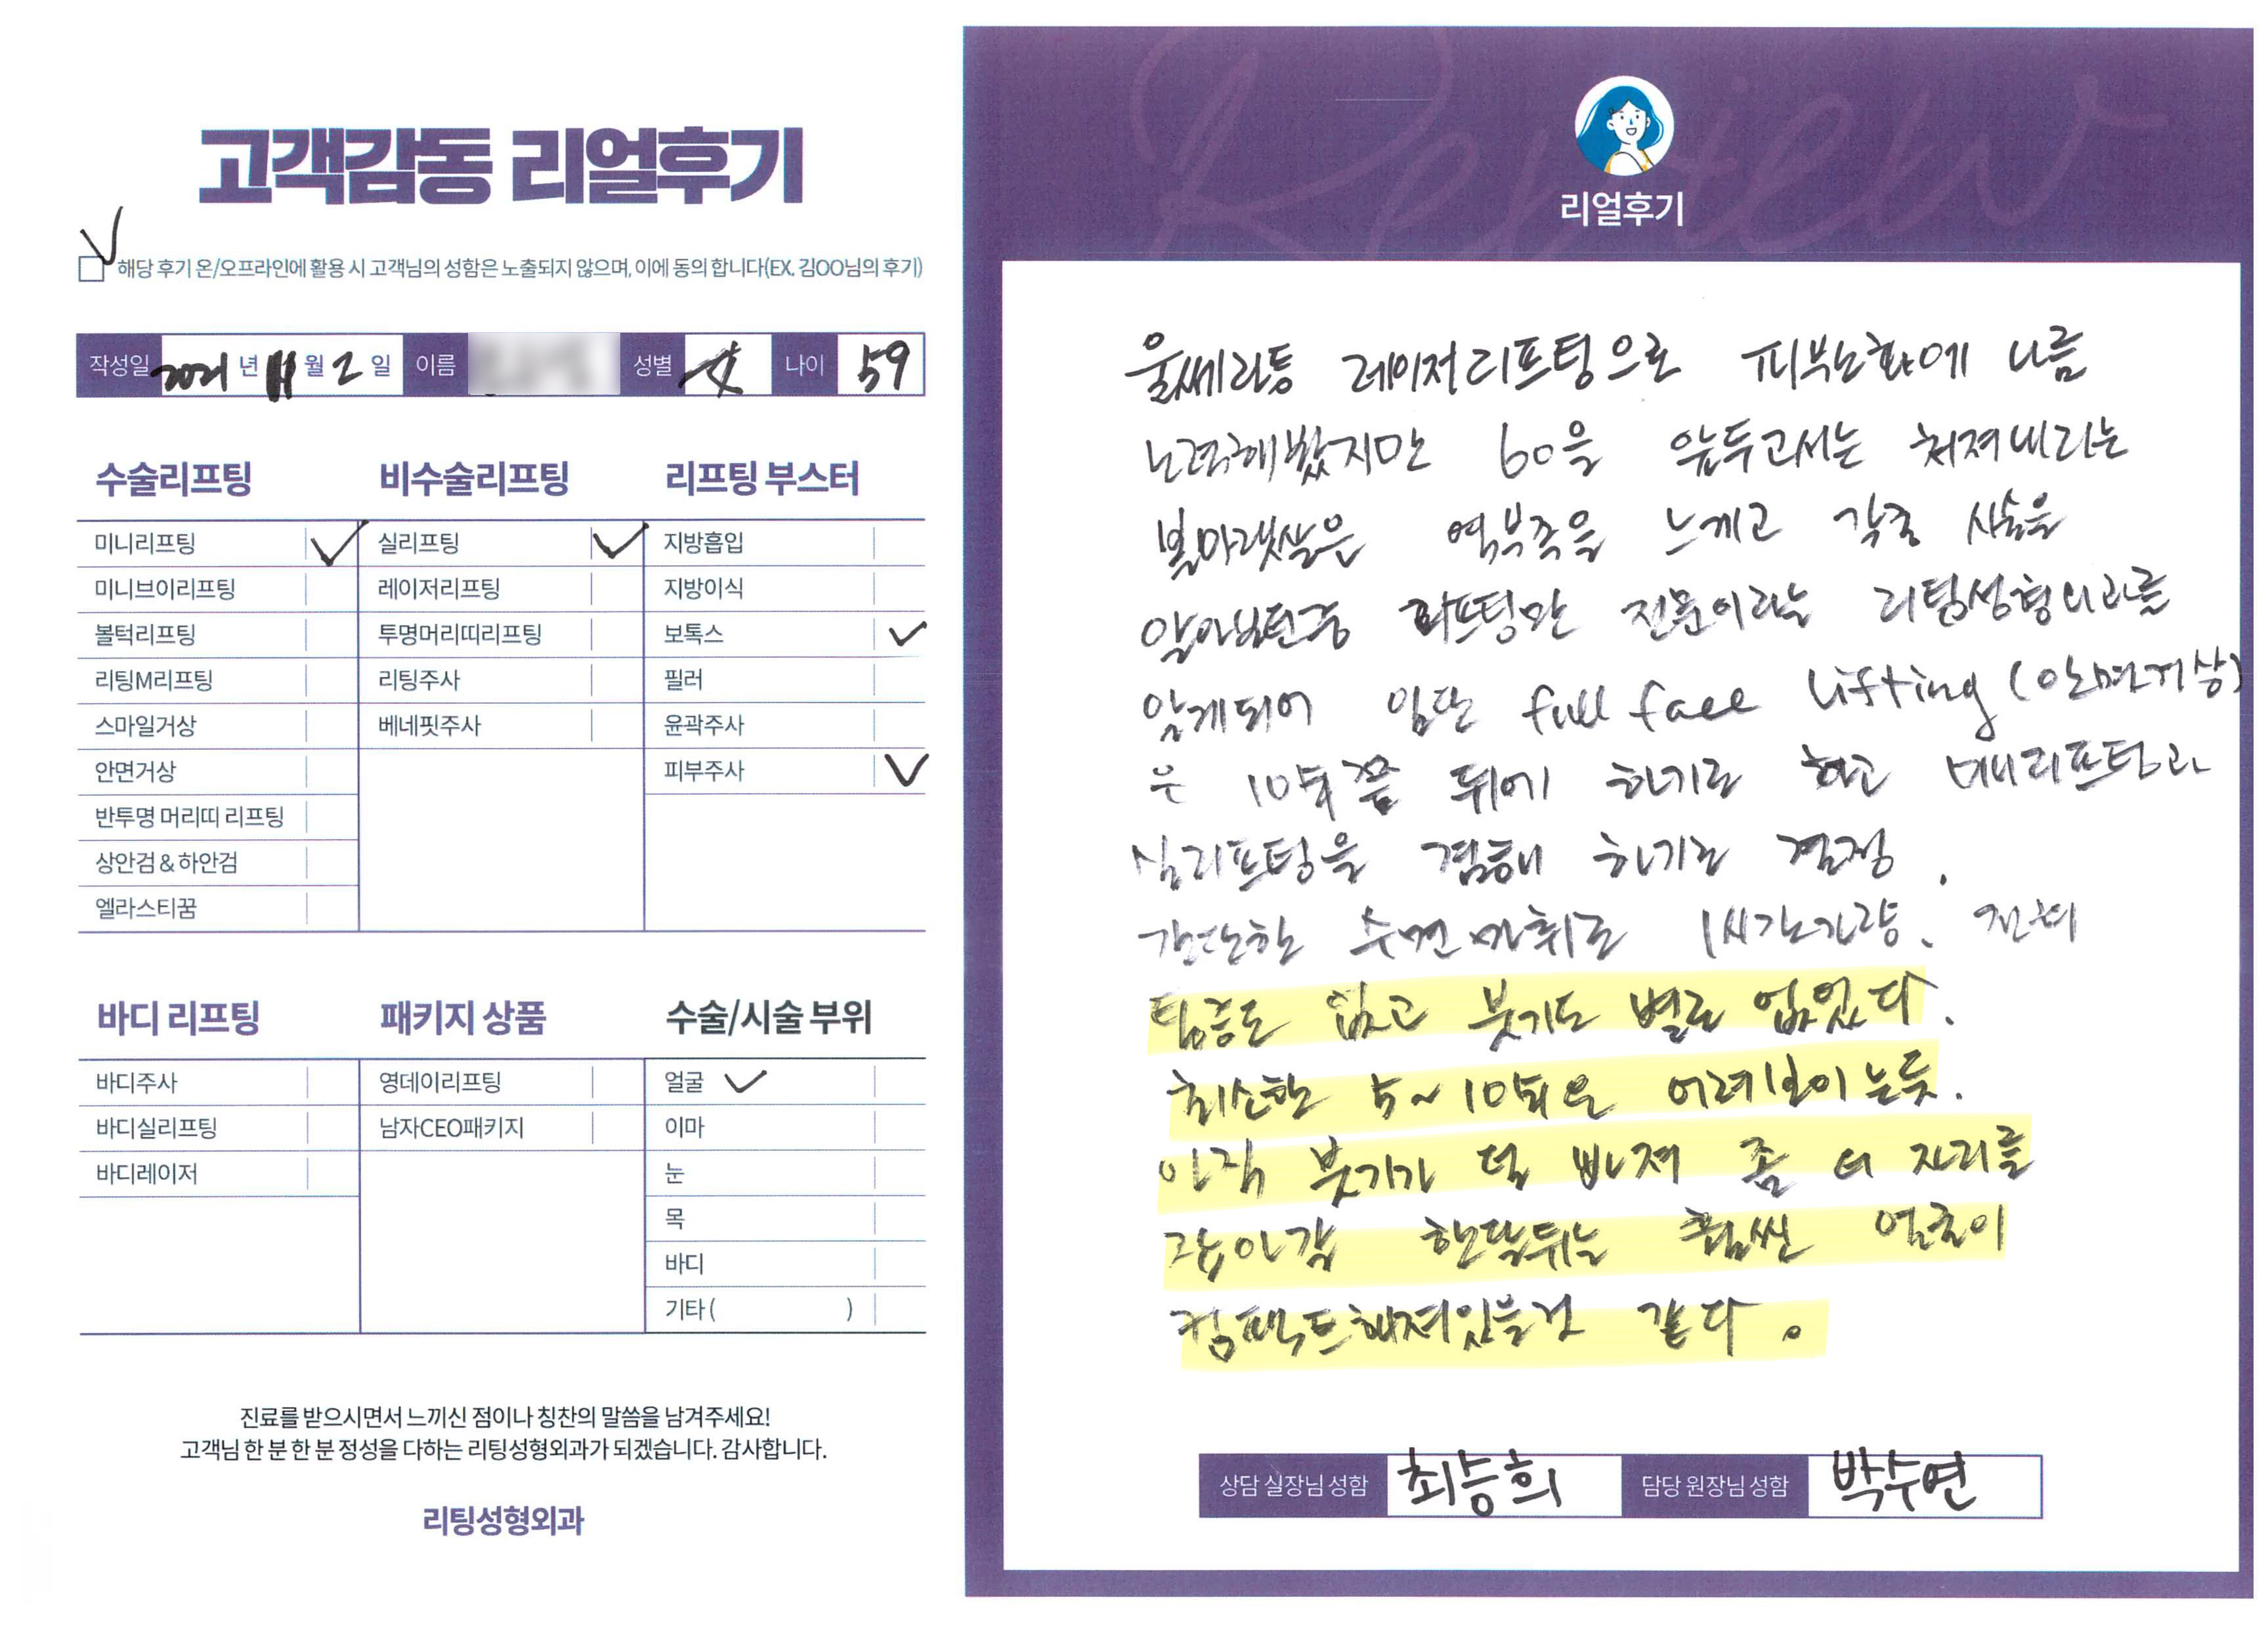 고객감동 리얼후기
해당 후기 온/오프라인에 활용 시 고객님의 성함은 노출되지 않으며, 이에 동의 합니다(EX. 김OO님의 후기)
작성일 2021 년 11 월 2 일 이름 성별 女 나이 59
수술리프팅
미니리프팅
미니브이리프팅
볼턱리프팅
리팅M리프팅
스마일거상
안면거상
반투명 머리띠 리프팅
상안검 & 하안검
엘라스티꿈
비수술리프팅
실리프팅
레이저리프팅
투명머리띠리프팅
리팅주사
베네핏주사
리프팅 부스터
지방흡입
지방이식
보톡스
필러
윤곽주사
피부주사
바디 리프팅
바디주사
바디실리프팅
바디레이저
패키지 상품
영데이리프팅
남자CEO패키지
수술/시술 부위
얼굴
이마
눈
목
바디
기타 ( )
진료를 받으시면서 느끼신 점이나 칭찬의 말씀을 남겨주세요!
고객님 한 분 한 분 정성을 다하는 리팅성형외과가 되겠습니다. 감사합니다.
리팅성형외과
Review
리얼후기
울쎄라등 레이저리프팅으로 피부노화에 나름
노력해봤지만 60을 앞두고서는 처져내리는
볼아랫살은 역부족을 느끼고 각종 시술을
알아보던중 리프팅만 전문이라는 리팅성형외과를
알게되어 일단 full face lifting (안면거상)
은 10년쯤 뒤에 하기로 하고 미니리프팅과
실리프팅을 겸해 하기로 결정.
간단한 수면마취로 1시간가량. 전혀
통증도 없고 붓기도 별로 없었다.
최소한 5~10년은 어려보이는듯.
아직 붓기가 덜 빠져 좀 더 자리를
잡아갈 한달뒤는 훨씬 얼굴이
컴팩트해져있을것 같다.
상담 실장님 성함 최승희 담당 원장님 성함 박수연